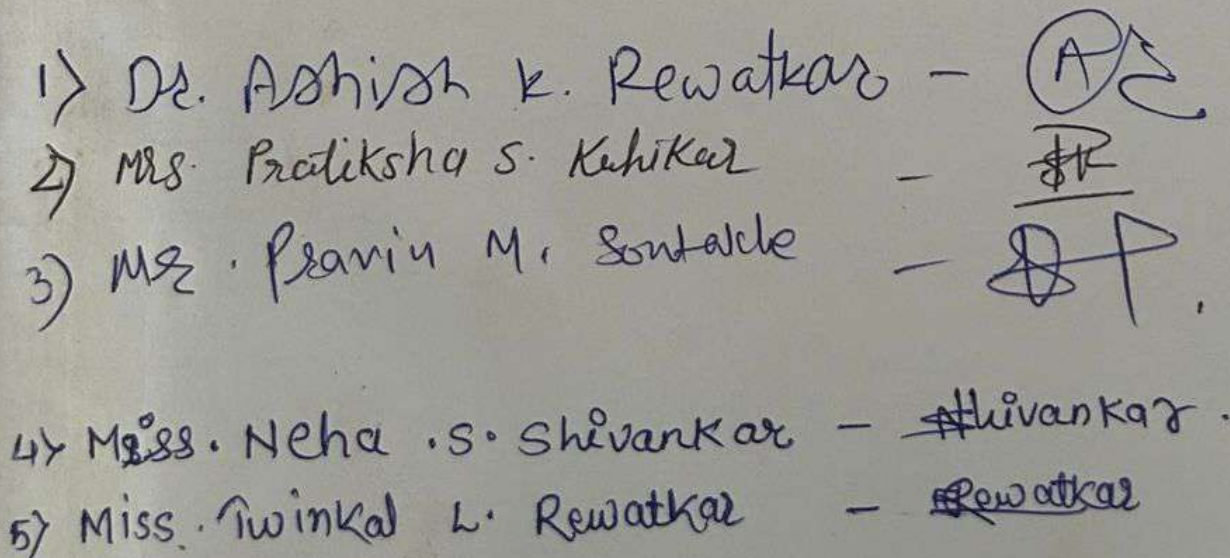 1) Dr. Ashish K. Rewatkar -
2) Mrs. Pratiksha S. Kuhikar -
3) Mr. Pravin M. Sontakke -
4) Miss. Neha .S. Shivankar - Shivankar.
5) Miss. Twinkal L. Rewatkar - Rewatkar